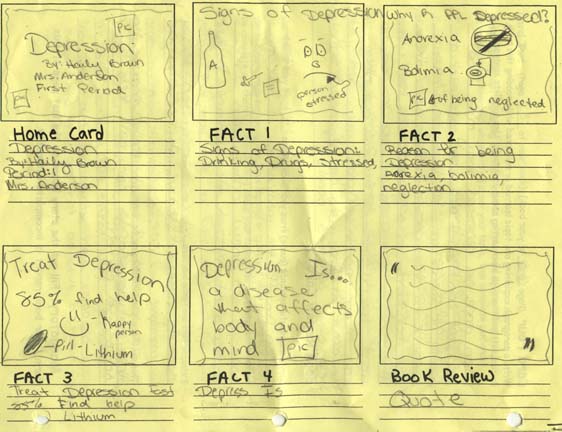 Depression
Pic
By: Haily Brown
Mrs. Anderson
First Period
Pic
Home Card
Depression
By: Haily Brown
Period: 1
Mrs. Anderson
Signs of Depression
A
person
stressed
FACT 1
Signs of Depression:
Drinking, Drugs, Stressed,
Why R PPL Depressed!?
Anorexia
Bolimia
Pic of being neglected
FACT 2
Reason for being
Depression
anorexia, bolimia,
neglection
Treat Depression
85% find help
happy
person
Pill - Lithium
FACT 3
Treat Depression fast
85% Find help
Lithium
Depression Is...
a disease
that affects
body and
mind Pic
FACT 4
Depress Is
" "
Book Review
Quote